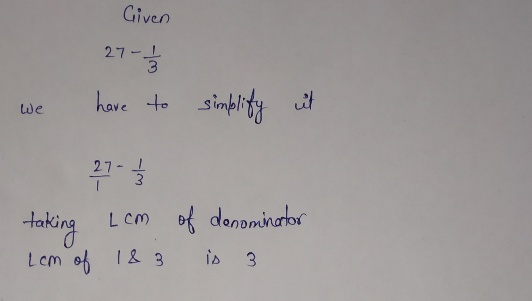 Given
27 - 1/3
we have to simplify it
27/1 - 1/3
taking LCM of denominator
Lcm of 1 & 3 is 3